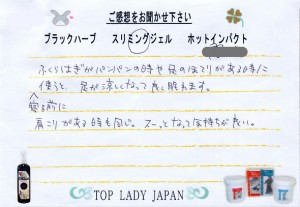 ご感想をお聞かせ下さい
ブラックハーブ スリミングジェル ホットインパクト
ふくらはぎがパンパンの時や足のほてりがある時に
使うと、足が涼しくなって良く眠れます。
寝る前に
肩こりがある時も同じ。スーッとなって気持ちが良い。
TOP LADY JAPAN